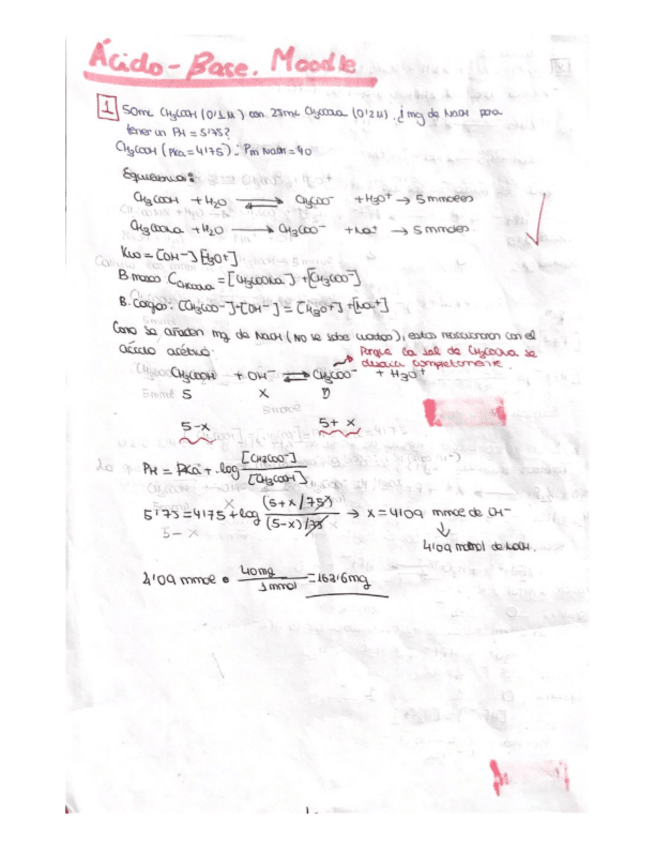 Ácido-Base. Moodle
1 50mL CH3COOH (0'1M) con 25mL CH3COONa (0'2M). ¿mg de NaOH para
tener un PH = 5'75?
CH3COOH (pKa = 4'75). Pm NaOH = 40
Equilibrios:
CH3COOH + H2O ⇌ CH3COO- + H3O+ → 5 mmoles
CH3COONa + H2O → CH3COO- + Na+ → 5 mmoles.
Kw = [OH-] [H3O+]
B. masa: = [CH3COONa] + [CH3COO-]
B. cargas: [CH3COO-] + [OH-] = [H3O+] + [Na+]
Como se añaden mg de NaOH (NO se sabe cuantos), estos reaccionaran con el
ácido acético.
Porque la sal de CH3COONa se
disocia completamente.
CH3COOH + OH- ⇌ CH3COO- + H3O+
5 X
5-x 5+x
PH = PKa + log [CH3COO-] / [CH3COOH]
5'75 = 4'75 + log (5+x/75) / (5-x)/75 → x = 4'09 mmol de OH-
4'09 mmol de NaOH.
4'09 mmol • 40mg / 1mmol = 163'6mg